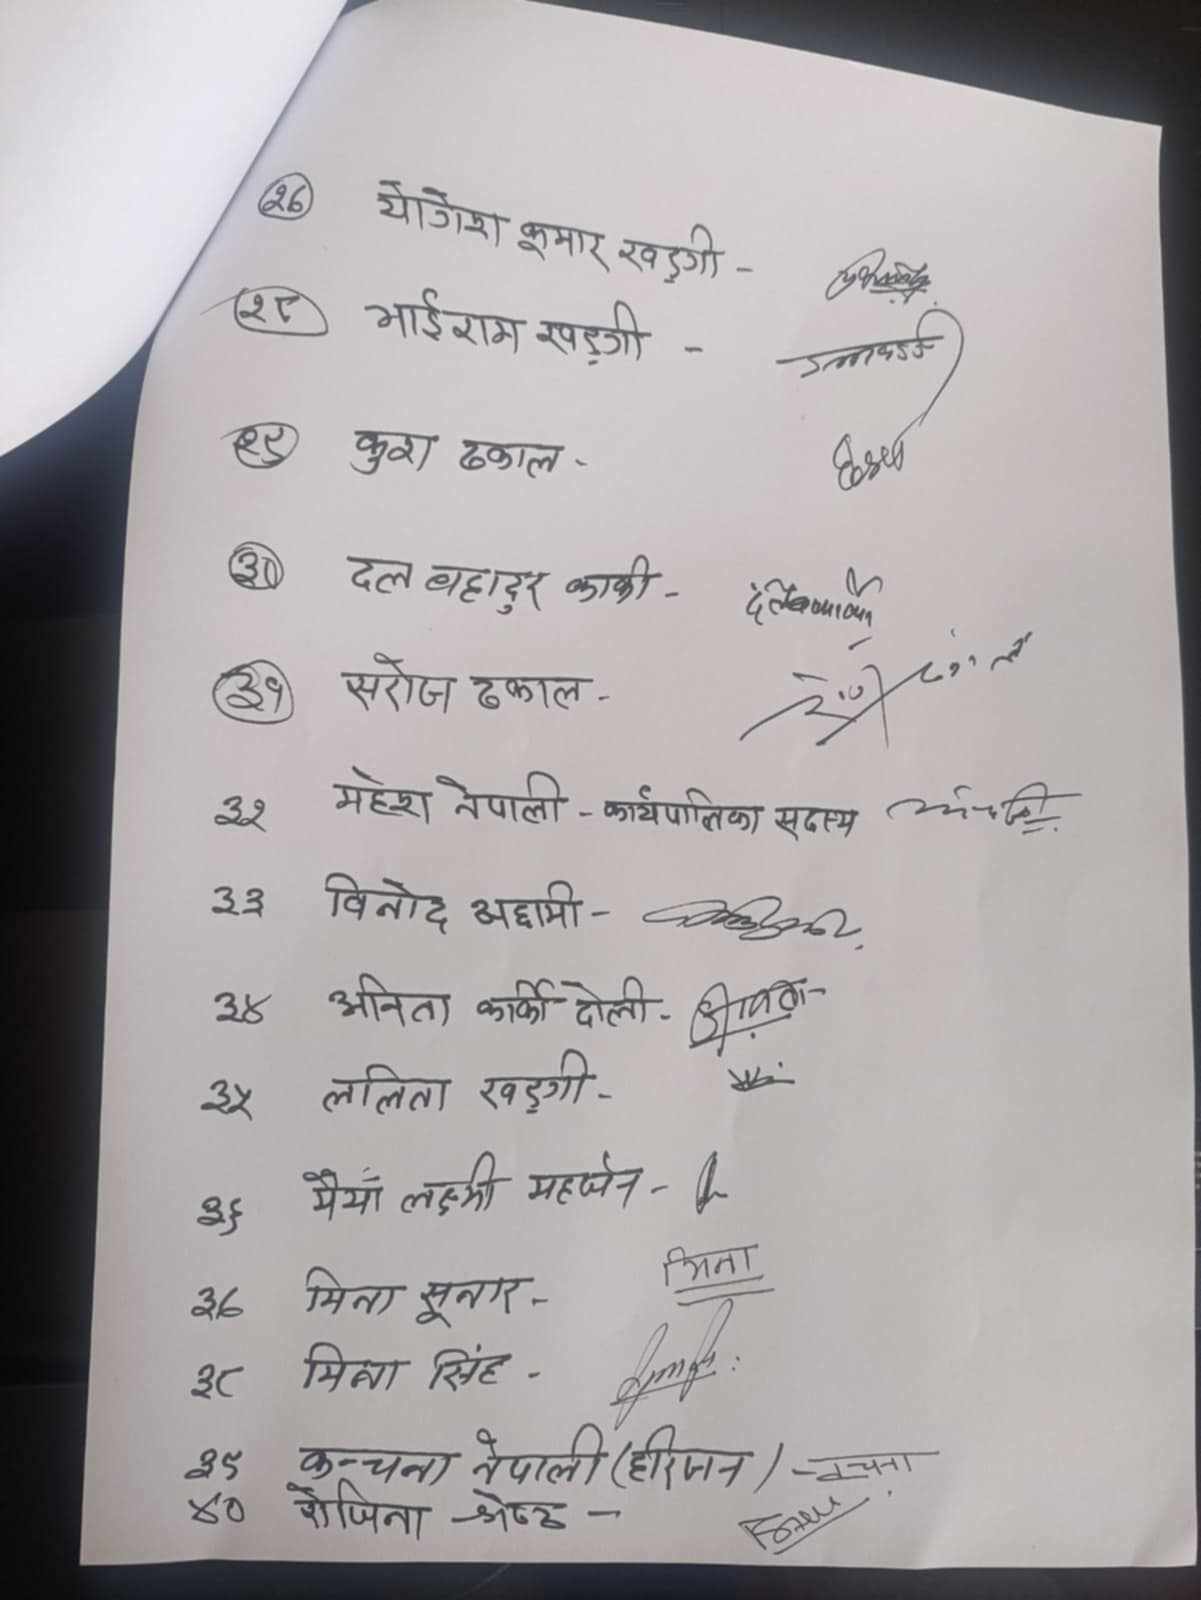 २७ योगेश कुमार खड्गी -
२८ भाईराम खड्गी -
२९ कुश ढकाल -
३० दल बहादुर कार्की -
३१ सरोज ढकाल -
३२ महेश नेपाली - कार्यपालिका सदस्य
३३ विनोद अद्दामी -
३४ अनिता कार्की दोली -
३५ ललिता खड्गी -
३६ मैयाँ लक्ष्मी महर्जन -
३७ मिना सुनार - मिना
३८ मिना सिंह -
३९ कन्चना नेपाली (हरिजन) -
४० रोजिना श्रेष्ठ -